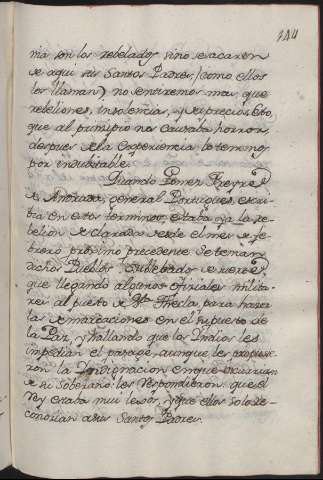 144
mà son los rebelados sino se sacaren
de aqui sus Santos Padres, (como ellos
los llaman) no sentiremos mas, que
rebeliones, insolencia, y desprecios. Esto,
que al principio nos causaba horror,
despues de la experiencia lo tenemos
por indubitable.
Quando Gomez Freyre
de Andrada, General Portugues, escri
bia en estos terminos, estaba ya la re
belion declarada desde el mes de fe
brero proximo precedente de
dichos Pueblos. Sublebados de suerte,
que llegando algunos oficiales milita
res al puesto de Sta. Thecla, para hazer
las demarcaciones en el supuesto de
la Paz, y hallando que los Indios les
impedian el passage, aunque les propusie
ron la Indignacion en que incurrian
de su Soberano: les respondieron que el
Rey estaba mui lexos, y que ellos solo re
conocian a sus Santos Padres.